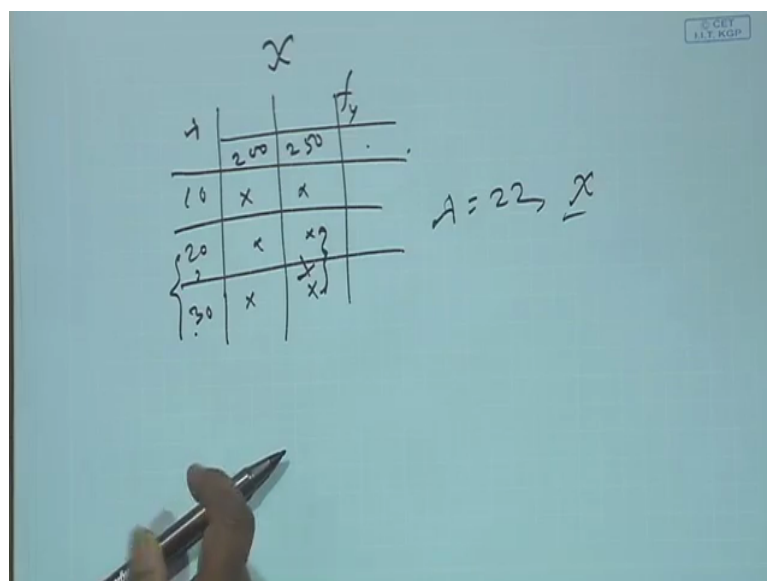 © CET
I.I.T. KGP
X
λ f_y
200 250 . .
10 x x
20 x x
30 x x
λ = 22, X